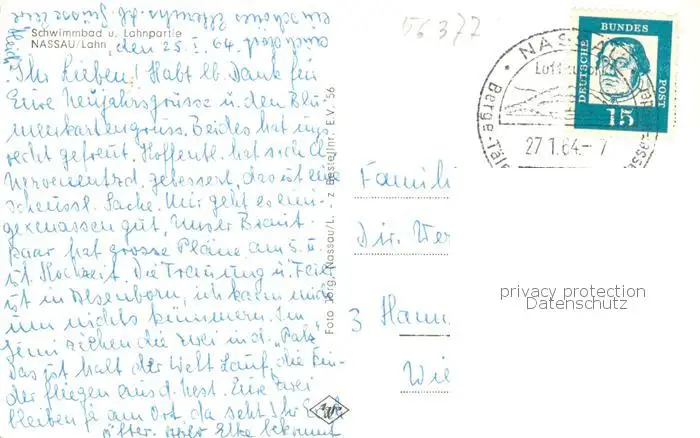 56377
Schwimmbad u. Lahnpartie
NASSAU/Lahn
den 25. I. 64.
Ihr Lieben! Habt lb. Dank für
Eure Neujahrsgrüsse u. den Blu-
menkartengruss. Beides hat uns
recht gefreut. Hoffentl. hat sich d.
Nervenentzd. gebessert, das ist eine
scheussl. Sache. Mir geht es eini-
germassen gut, Unser Braut-
paar hat grosse Pläne am 5. II.
ist Hochzeit. Die Trauung u. Feier
ist in Alsenborn, ich kann mich
um nichts kümmern. Im
ziehen die zwei in d. "Pfalz"
Das ist halt der Welt Lauf, die Kin-
der fliegen aus d. Nest. Eure zwei
bleiben ja am Ort, da seht Ihr Euch
öfter. Elke bekommt
Foto Jörg, Nassau/L. - z Bestellnr. E.V. 56
Familie
Dir. Wer
3 Hann
Wie
DEUTSCHE
BUNDES
POST
15
NASSAU
Luftkurort
27.1.64-7
privacy protection
Datenschutz